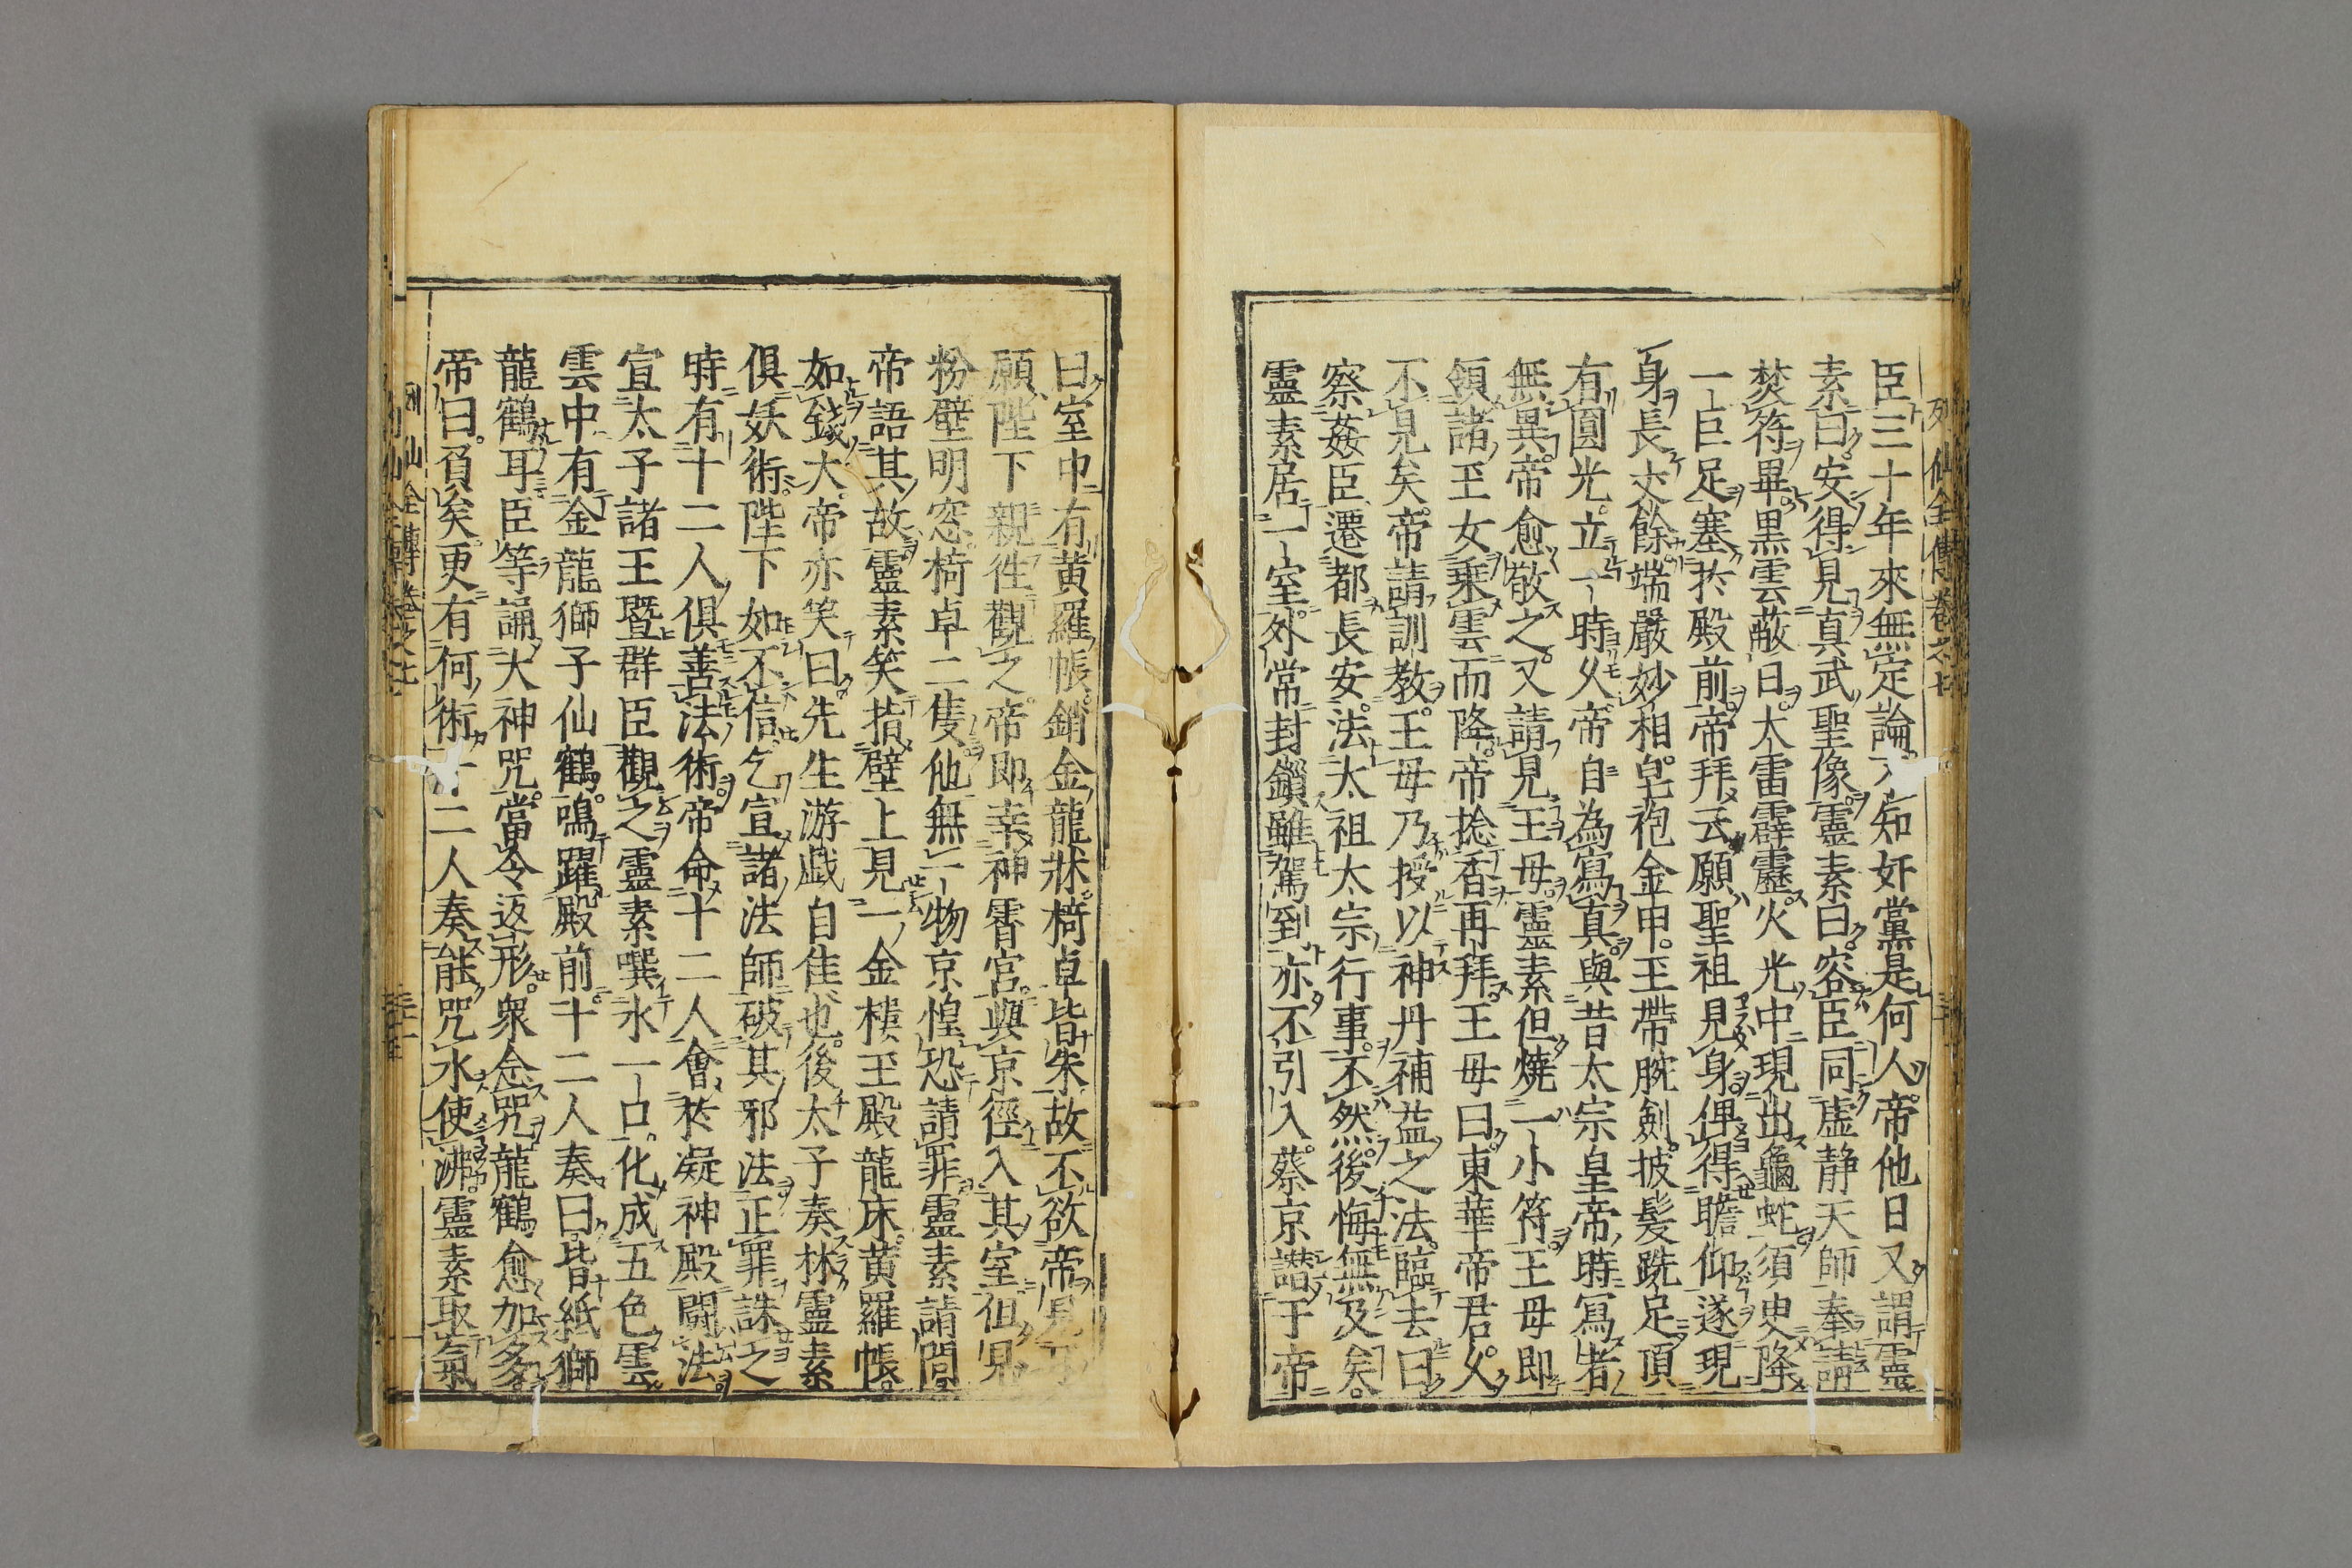 列仙全傳卷之七
臣三十年來無定論不知奸黨是何人帝他日又謂靈
素曰安得見真武聖像靈素曰容臣同虛静天師奉請
焚符畢黒雲蔽日大雷霹靂火光中現出龜蛇須臾降
一巨足塞於殿前帝拜云願聖祖見身俾得瞻仰遂現
身長丈餘端嚴妙相皂袍金甲玉帶腕劍披髮跣足頂
有圓光立一時久帝自為寫真與昔太宗皇帝時寫者
無異帝愈敬之又請見王母靈素但燒一小符王母即
領諸玉女乗雲而降帝捻香再拜王母曰東華帝君久
不見矣帝請訓教王母乃授以神丹補益之法臨去曰
察姦臣遷都長安法太祖太宗行事不然後悔無及矣
靈素居一室外常封鎖雖駕到亦不引入蔡京譖于帝
曰室中有黄羅帳銷金龍牀椅卓皆朱故不欲帝見
願陛下親徃觀之帝即幸神霄宮與京徑入其室但見
粉壁明窓椅卓二隻他無一物京惶恐請罪靈素請問
帝語其故靈素笑指壁上見一金樓玉殿龍床黄羅帳
如錢大帝亦笑曰先生游戯自佳也後太子奏林靈素
俱妖術陛下如不信乞宣諸法師破其邪法正罪誅之
時有十二人俱善法術帝命十二人會於凝神殿闘法
宣太子諸王曁群臣觀之靈素噀水一口化成五色雲
雲中有金龍獅子仙鶴鳴躍殿前十二人奏曰皆紙獅
龍鶴耳臣等誦大神咒當令返形衆念咒龍鶴愈加多
帝曰負矣更有何術十二人奏能咒水使沸靈素取氣
列仙全傳卷之七